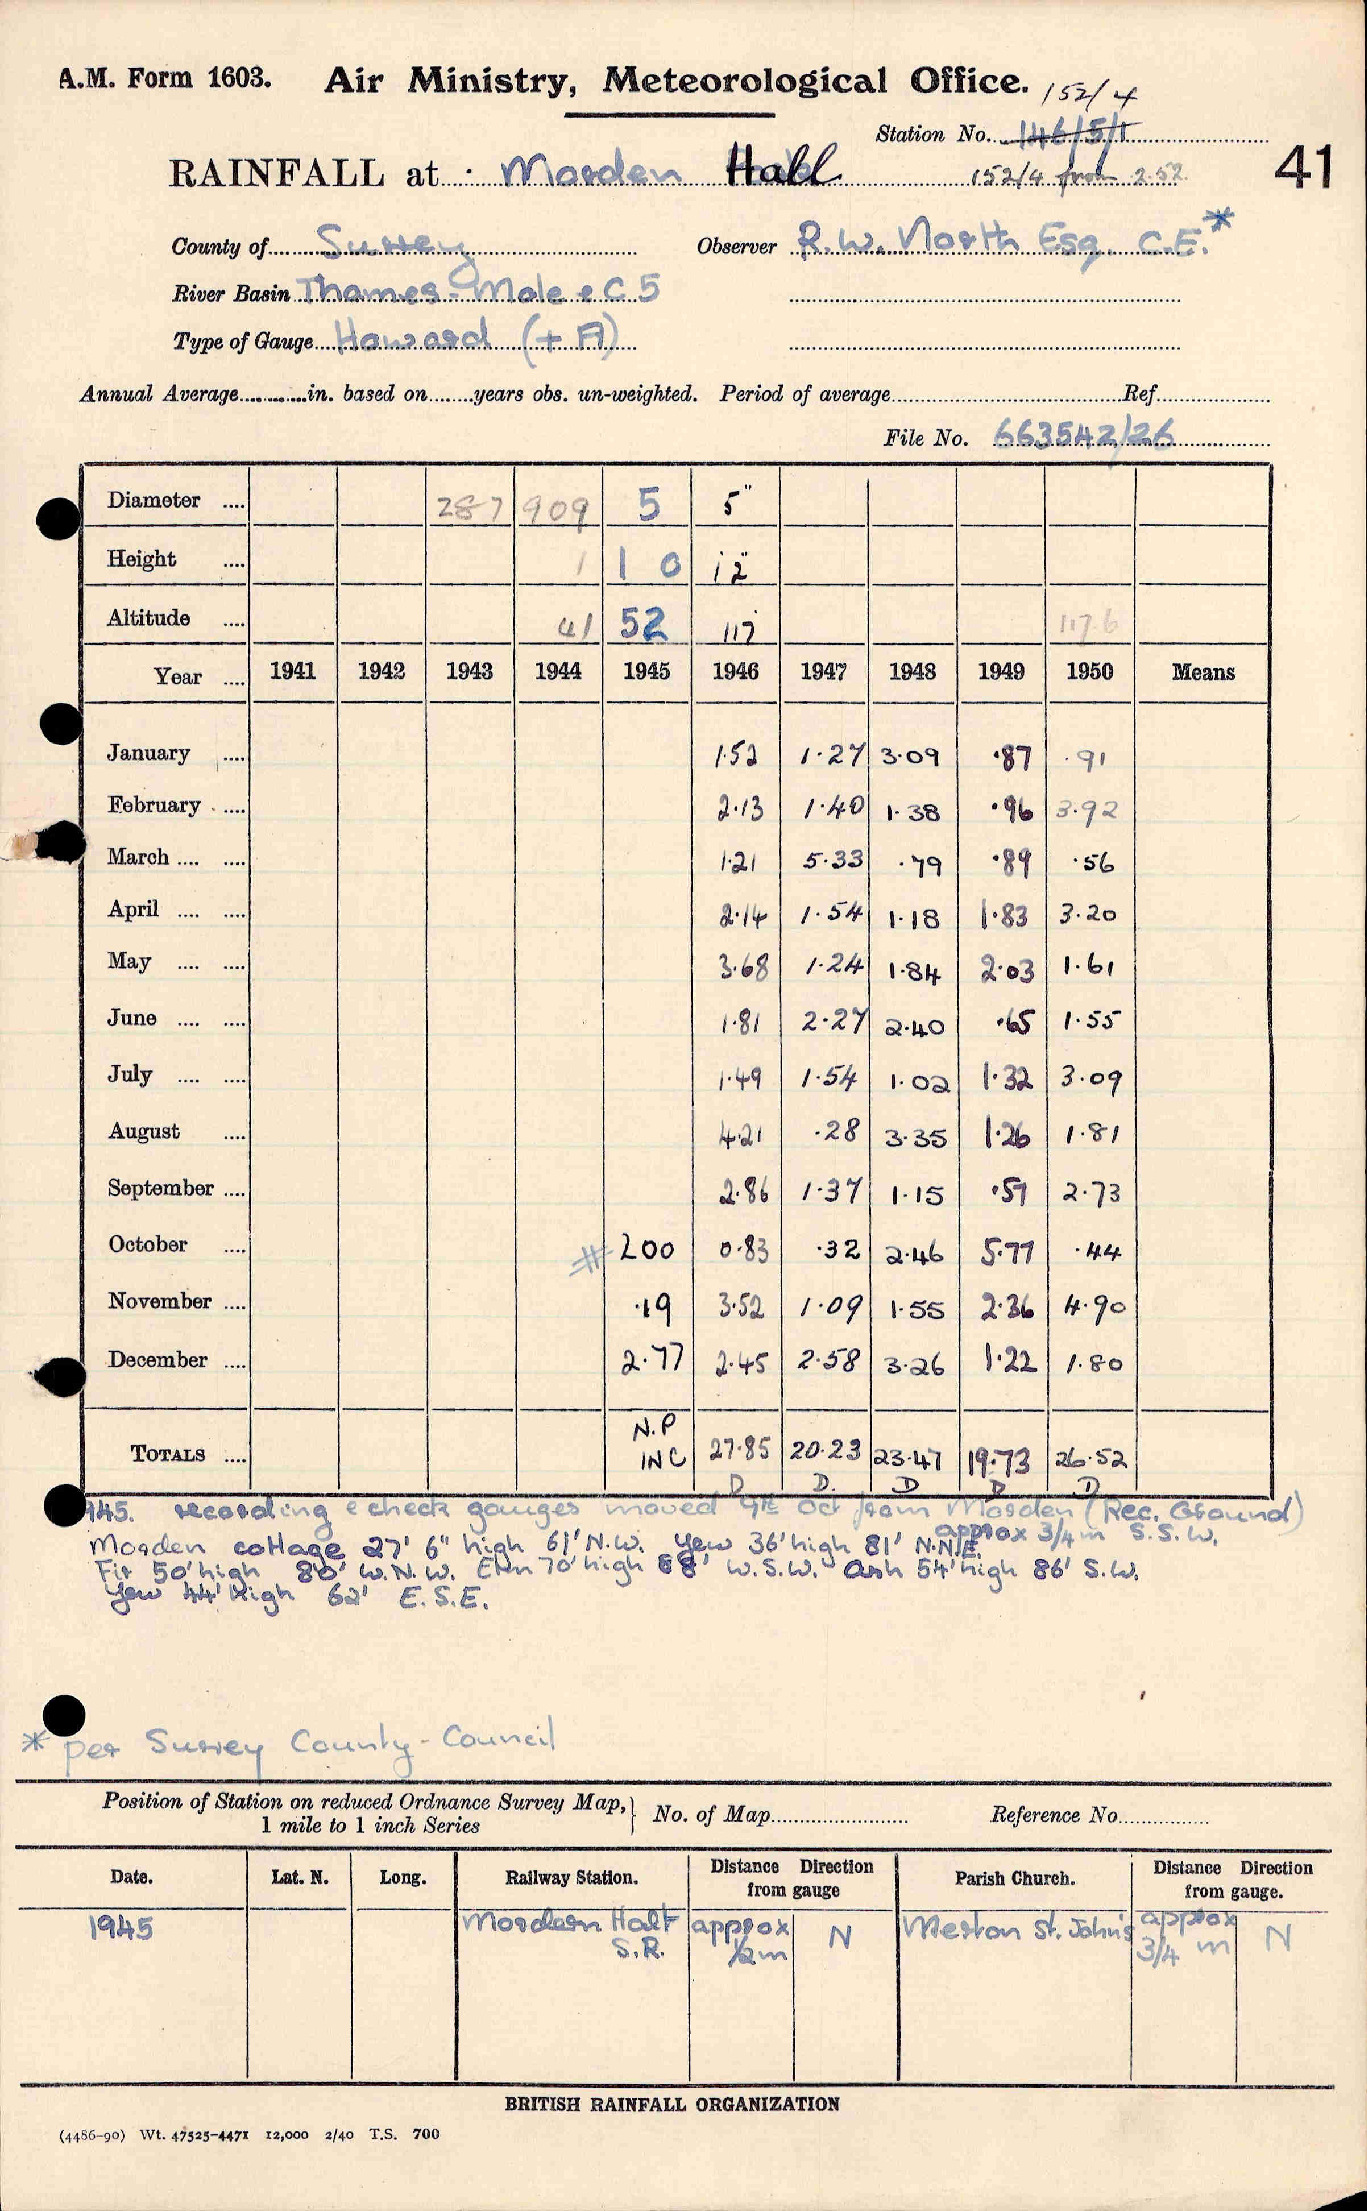 A.M. Form 1603. Air Ministry, Meteorological Office. 152/4
Station No. 146/5/1
RAINFALL at Morden Hall 152/4 from 2.52 41
County of Surrey Observer R.W. North Esq. C.E.*
River Basin Thames - Mole & C5
Type of Gauge Howard (+ A)
Annual Average in. based on years obs. un-weighted. Period of average Ref.
File No. 663542/26
Diameter 287 909 5 5"
Height 1 1 0 12"
Altitude 41 52 117' 117.6
Year 1941 1942 1943 1944 1945 1946 1947 1948 1949 1950 Means
January 1.52 1.27 3.09 .87 .91
February 2.13 1.40 1.38 .96 3.92
March 1.21 5.33 .79 .89 .56
April 2.14 1.54 1.18 1.83 3.20
May 3.68 1.24 1.84 2.03 1.61
June 1.81 2.27 2.40 .65 1.55
July 1.49 1.54 1.02 1.32 3.09
August 4.21 .28 3.35 1.26 1.81
September 2.86 1.37 1.15 .57 2.73
October # 200 0.83 .32 2.46 5.77 .44
November .19 3.52 1.09 1.55 2.36 4.90
December 2.77 2.45 2.58 3.26 1.22 1.80
N.P
TOTALS INC 27.85 20.23 23.47 19.73 26.52
D D. D D D
1945. recording & check gauges moved 9th Oct from Morden (Rec. Ground)
approx 3/4 m S.S.W.
Morden cottage 27' 6" high 61' N.W. Yew 36' high 81' N.N.E.
Fir 50' high 80' W.N.W. Elm 70' high 68' W.S.W. Ash 54' high 86' S.W.
Yew 44' high 62' E.S.E.
* per Surrey County-Council
Position of Station on reduced Ordnance Survey Map, 1 mile to 1 inch Series } No. of Map Reference No.
Date. Lat. N. Long. Railway Station. Distance Direction from gauge Parish Church. Distance Direction from gauge.
1945 Mordern Halt S.R. approx 1/2 m N Merton St. John's approx 3/4 m N
BRITISH RAINFALL ORGANIZATION
(4486-90) Wt. 47525-4471 12,000 2/40 T.S. 700